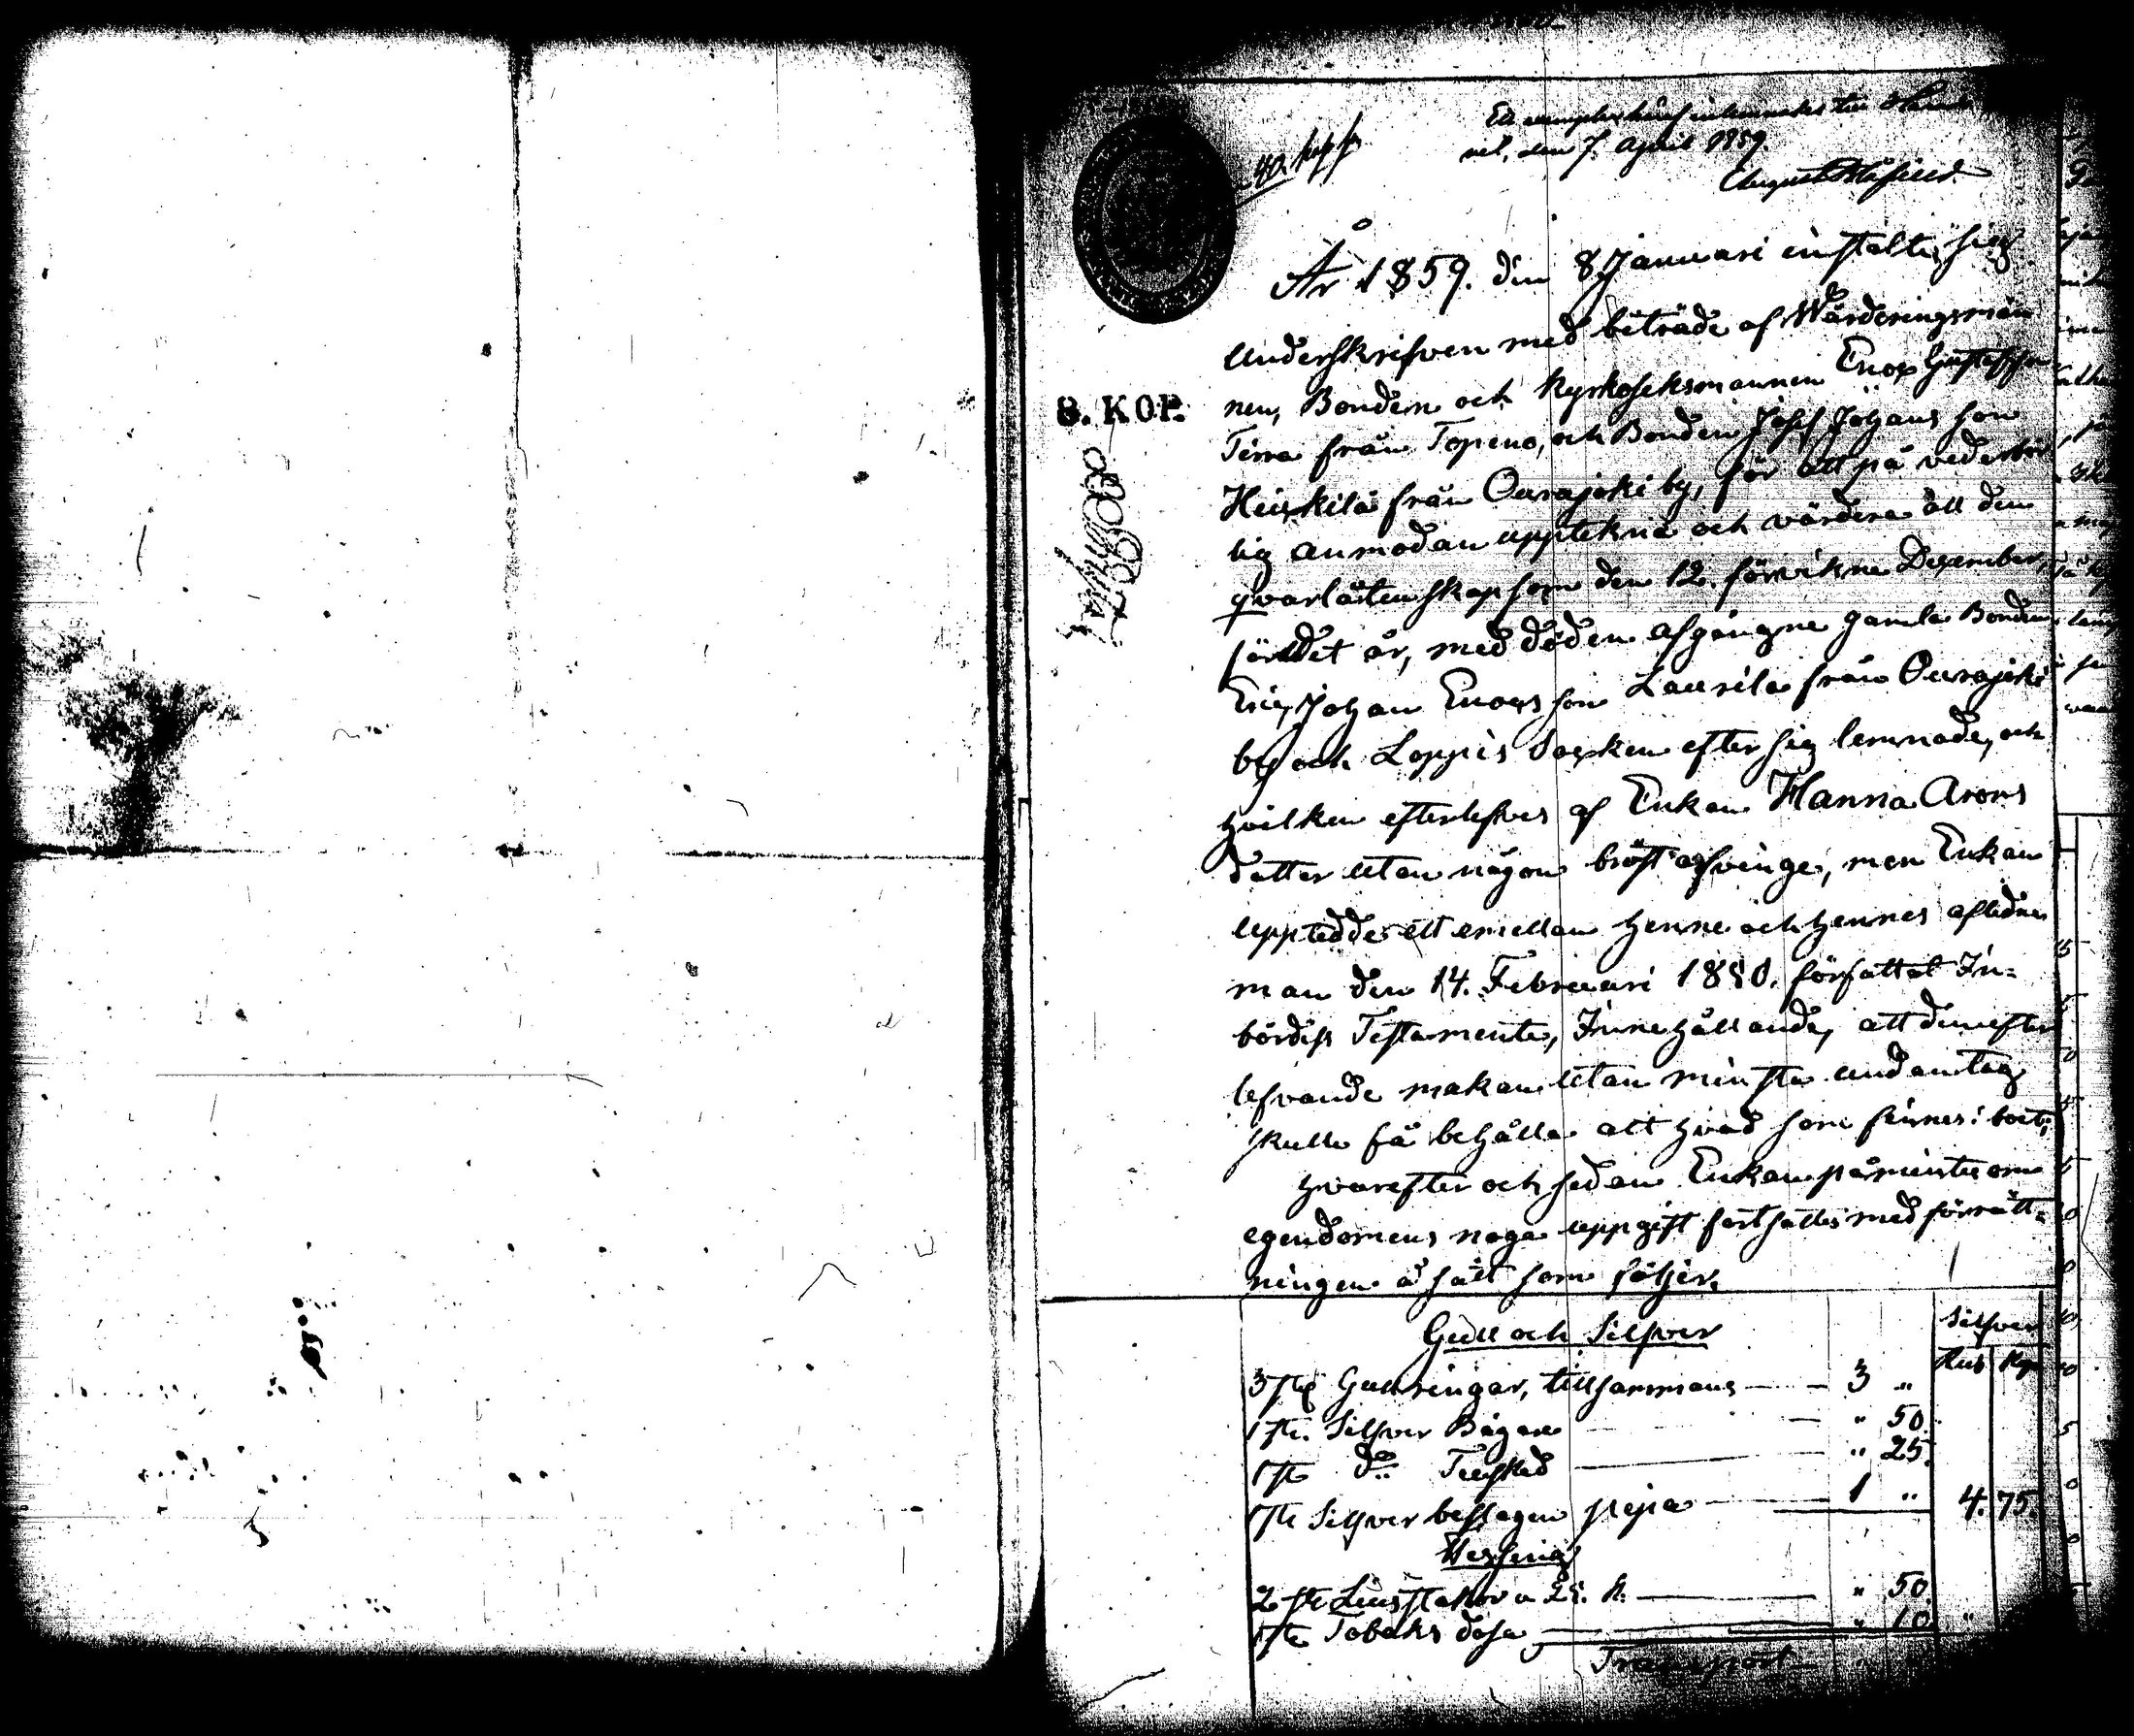 Ett exemplar häraf inlemnades till
den 7. April 1859.
August
40. kop sr
År 1859. den 8 Januari instälte sig
Underskrifven med biträde af Wärderingsmän
nen, Bonden och Kyrkosexmannen Enox Gustafsson
Tirra från Topeno, och Bonden Josef Johans son
8. KOP.
Heikkilä från Ourajoki by, för att på vederbör
lig anmodan upptekna och värdera all den
qvarlåtenskap som den 12. förvikne December
sördet år, med döden afgångne gamla Bonden
Eric Johan Enoxs son Laurila från Ourajoki
by och Loppis Socken efter sig lemnade, och
hvilken efterlefves af Enkan Hanna Arons
dotter utan någon bröst arfvinge, men Enkan
upptedde ett emellan henne och hennes aflidne
man den 14. Februari 1850. författat In-
bördes Testamente, Innehållande, att den efter
lefvande makan utan minsta undantag
skulle få behålla allt hvad som finnes i boet;
hvarefter och sedan Enkan påmintes om
egendomens noga uppgift fortsattes med förrätt-
ningen å sätt som följer.
Guld och Silfver
Silfver
Rub Kop
3 st Gullringar, tillsammans — 3 "
1 st. Silfver Bägare — " 50.
1 st do Tesked — " 25.
1 st Silfver beslagen pipa — 1 " 4. 75.
Messing
2 st Ljusstakor a 25. k. — " 50.
1 st Tobaks dosa — " 10 "
Transport